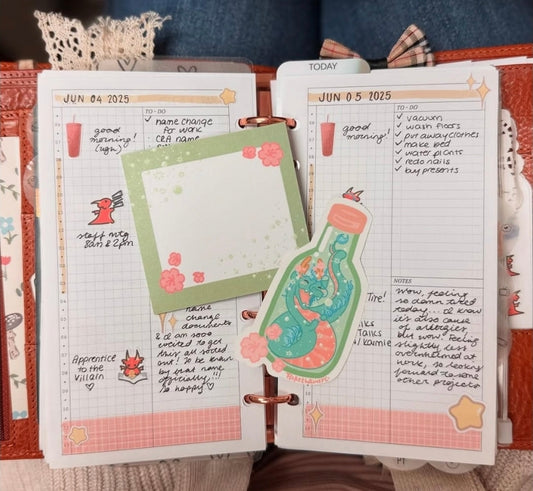 TODAY
JUN 04 2025
TO-DO
✓ name change
for work
CRA name
good
morning!
(ugh)
staff mtg
8am & 2pm
name
change
documents
& I am sooo
excited to get
this all sorted
out! To be known
by that name
officially!!!
So happy ♡
Apprentice
to the
Villain
♡
JUN 05 2025
TO-DO
good
morning!
✓ vacuum
✓ wash floors
✓ put away clothes
✓ make bed
✓ water plants
✓ redo nails
✓ buy presents
Tire!
NOTES
Wow, feeling
so damn tired
today... I know
it's also cause
of allergies,
but wow. Feeling
slightly less
overwhelmed at
work, so looking
forward to some
other projects